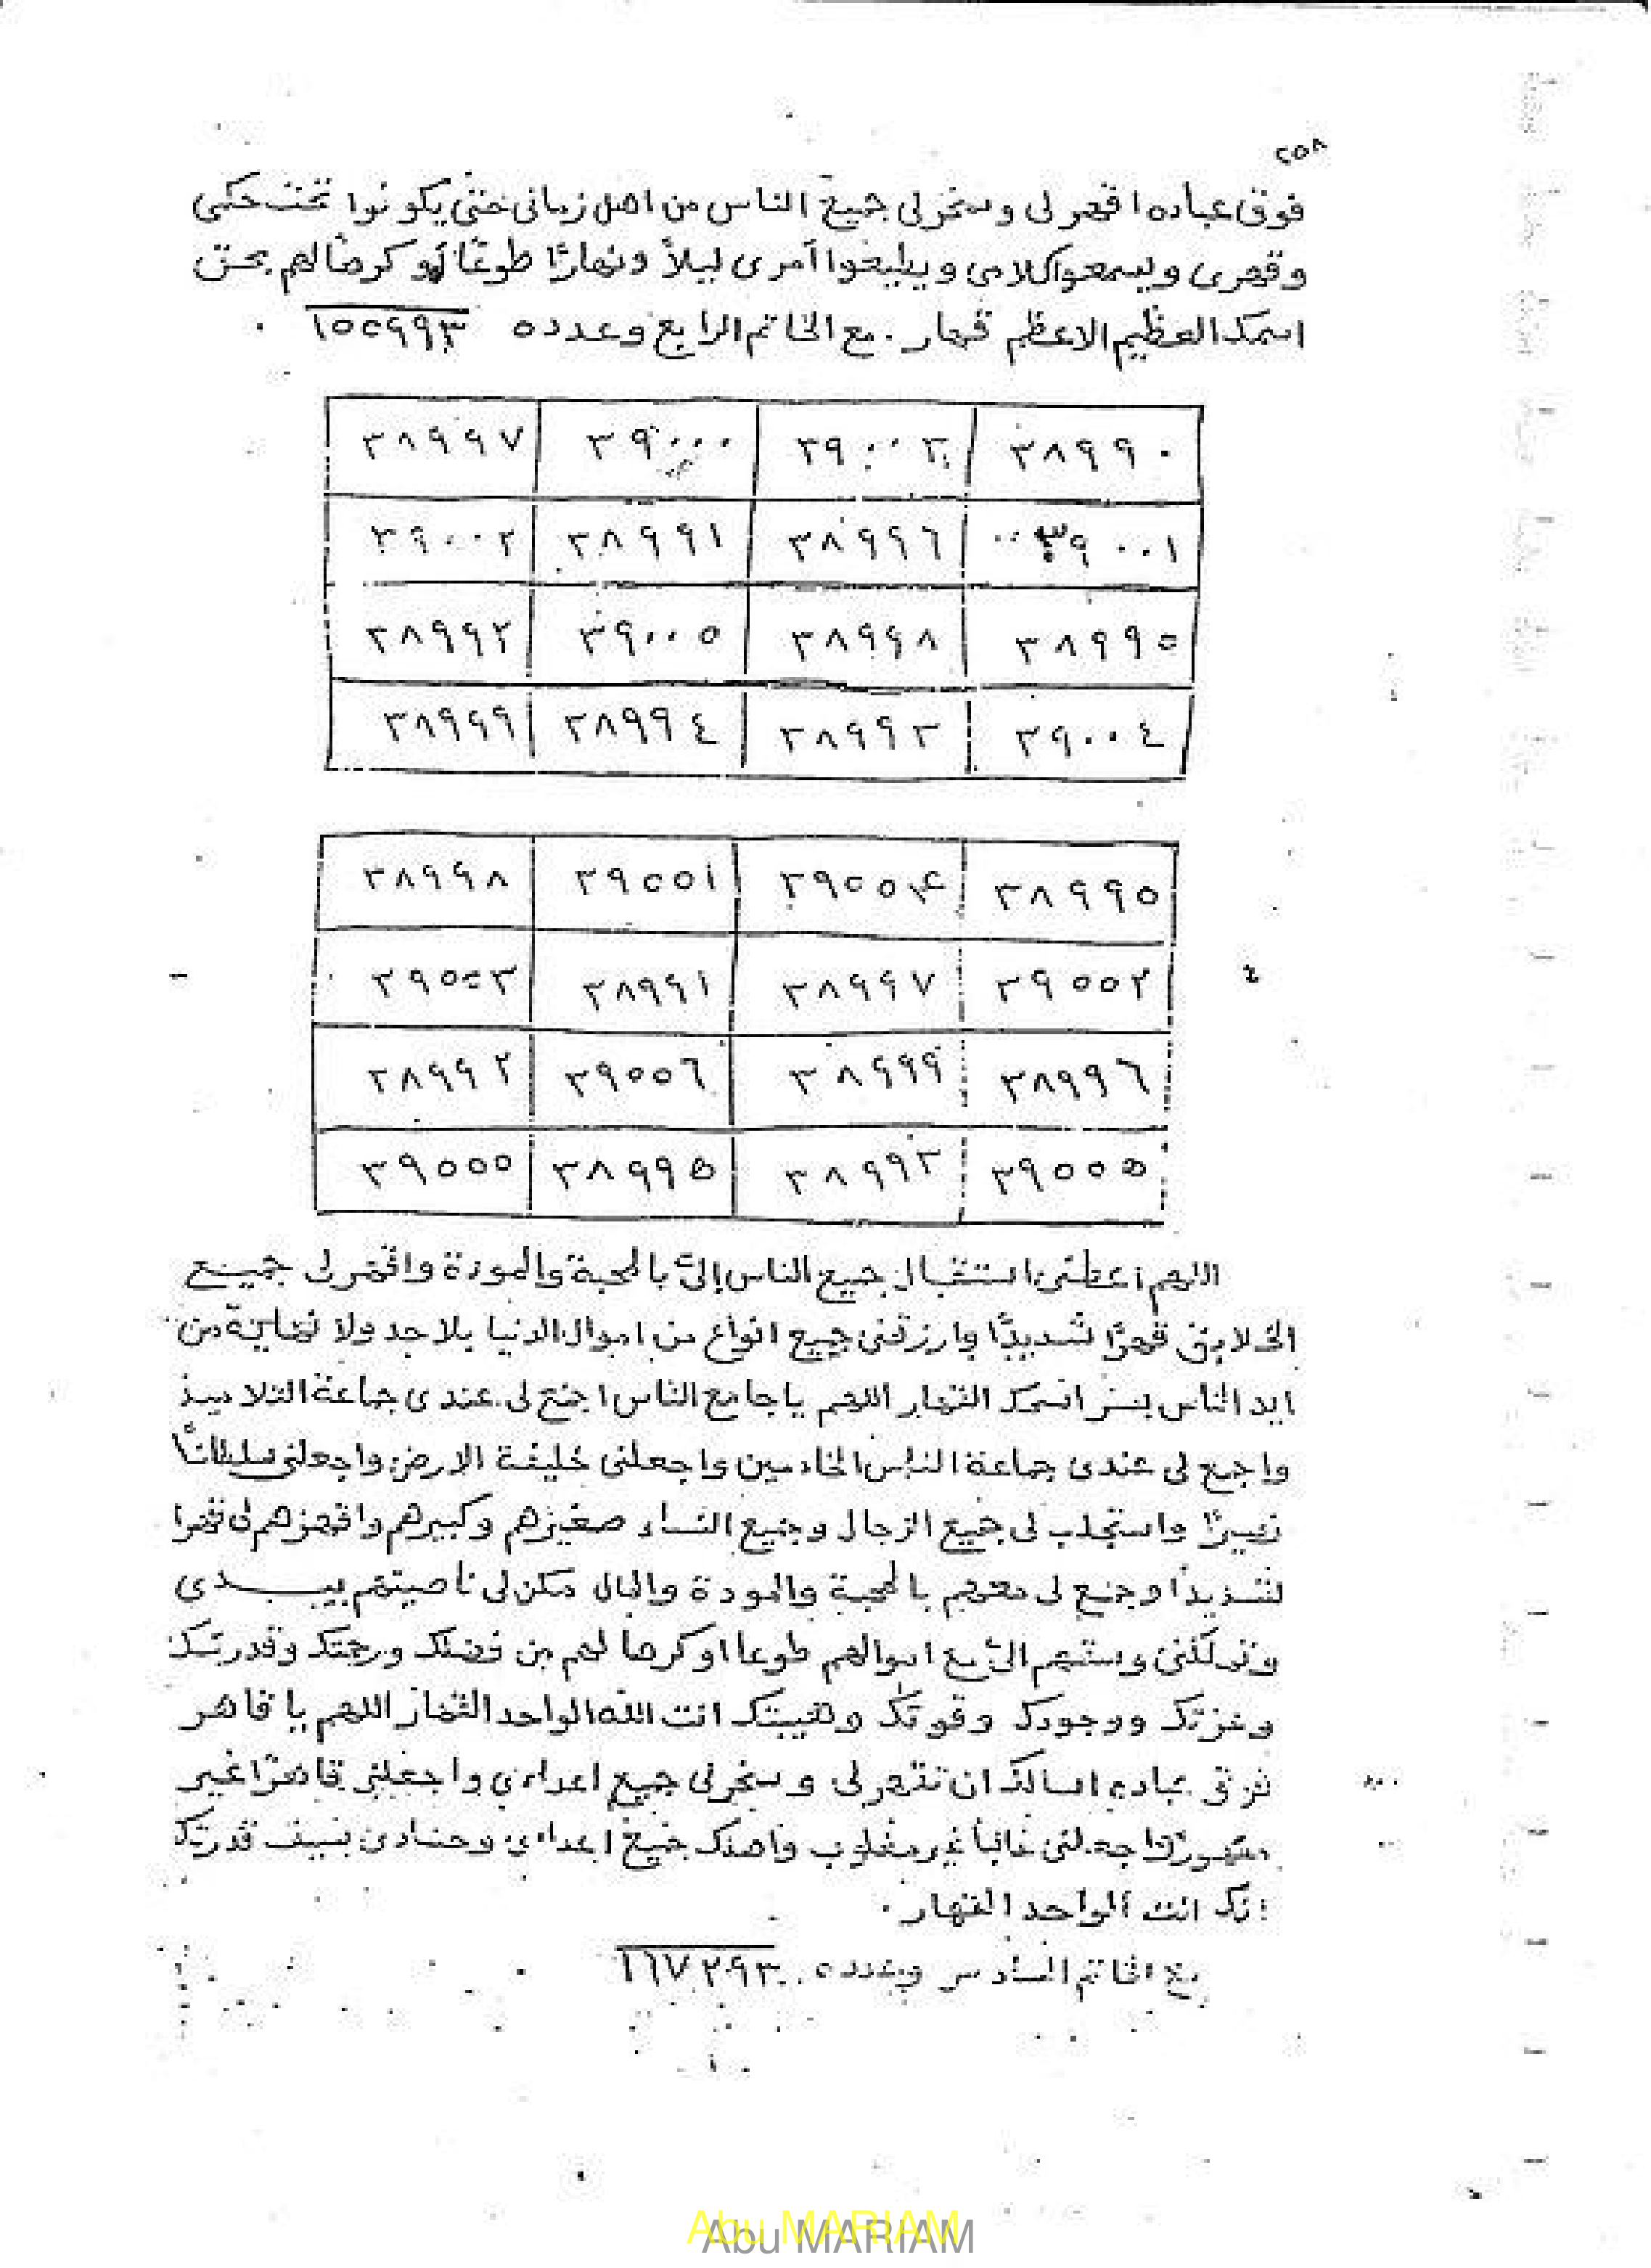 ٢٥٨
فوق عباده اقهر لى وسخر لى جميع الناس من اهل زمانى حتى يكونوا تحت حكمى
وقهرى ويسمعوا كلامى ويطيعوا أمرى ليلاً ونهارًا طوعًا أو كرهًا لهم بحق
اسمك العظيم الاعظم قهار . مع الخاتم الرابع وعدده ١٥٥٩٩٣
٣٨٩٩٠ ٣٩٠٠٣ ٣٩٠٠٠ ٣٨٩٩٧
٣٩٠٠١ ٣٨٩٩٦ ٣٨٩٩١ ٣٩٠٠٢
٣٨٩٩٥ ٣٨٩٩٨ ٣٩٠٠٥ ٣٨٩٩٢
٣٩٠٠٤ ٣٨٩٩٣ ٣٨٩٩٤ ٣٨٩٩٩
٣٨٩٩٥ ٣٩٥٥١ ٣٨٩٩٨
٣٩٥٥٢ ٣٨٩٩٧ ٣٨٩٩١ ٣٩٥٥٣
٤
٣٨٩٩٦ ٣٨٩٩٩ ٣٩٥٥٦ ٣٨٩٩٢
٣٩٥٥٥ ٣٨٩٩٣ ٣٨٩٩٥ ٣٩٥٥٥
اللهم اعطنى استقبال جميع الناس إلىّ بالمحبة والمودة واقهر لى جميع
الخلايق قهرًا شديدًا وارزقنى جميع انواع من اموال الدنيا بلا حد ولا نهاية من
ايد الناس بسر اسمك القهار اللهم يا جامع الناس اجمع لى عندى جماعة التلاميذ
واجمع لى عندى جماعة الناس الخادمين واجعلنى خليفة الارض واجعلنى سلطانًا
واستجلب لى جميع الرجال وجميع النساء صغيرهم وكبيرهم واقهرهم لى قهرا
شديدًا وجمع لى معهم بالمحبة والمودة والمال مكن لى ناصيتهم بيدى
الىّ مع اموالهم طوعا او كرها لهم من فضلك ورحمتك وقدرتك
وعزتك ووجودك وقوتك وهيبتك انت الله الواحد القهار اللهم يا قاهر
فوق عباده اسالك ان تقهر لى وسخر لى جميع اعداءى واجعلنى قاهرًا غير
مقهور واجعلنى غالبًا غير مغلوب واهلك جميع اعداءى وحسادى بسيف قدرتك
انك انت الواحد القهار .
مع الخاتم السادس وعدده ١٦٧٢٩٣
Abu MARIAM